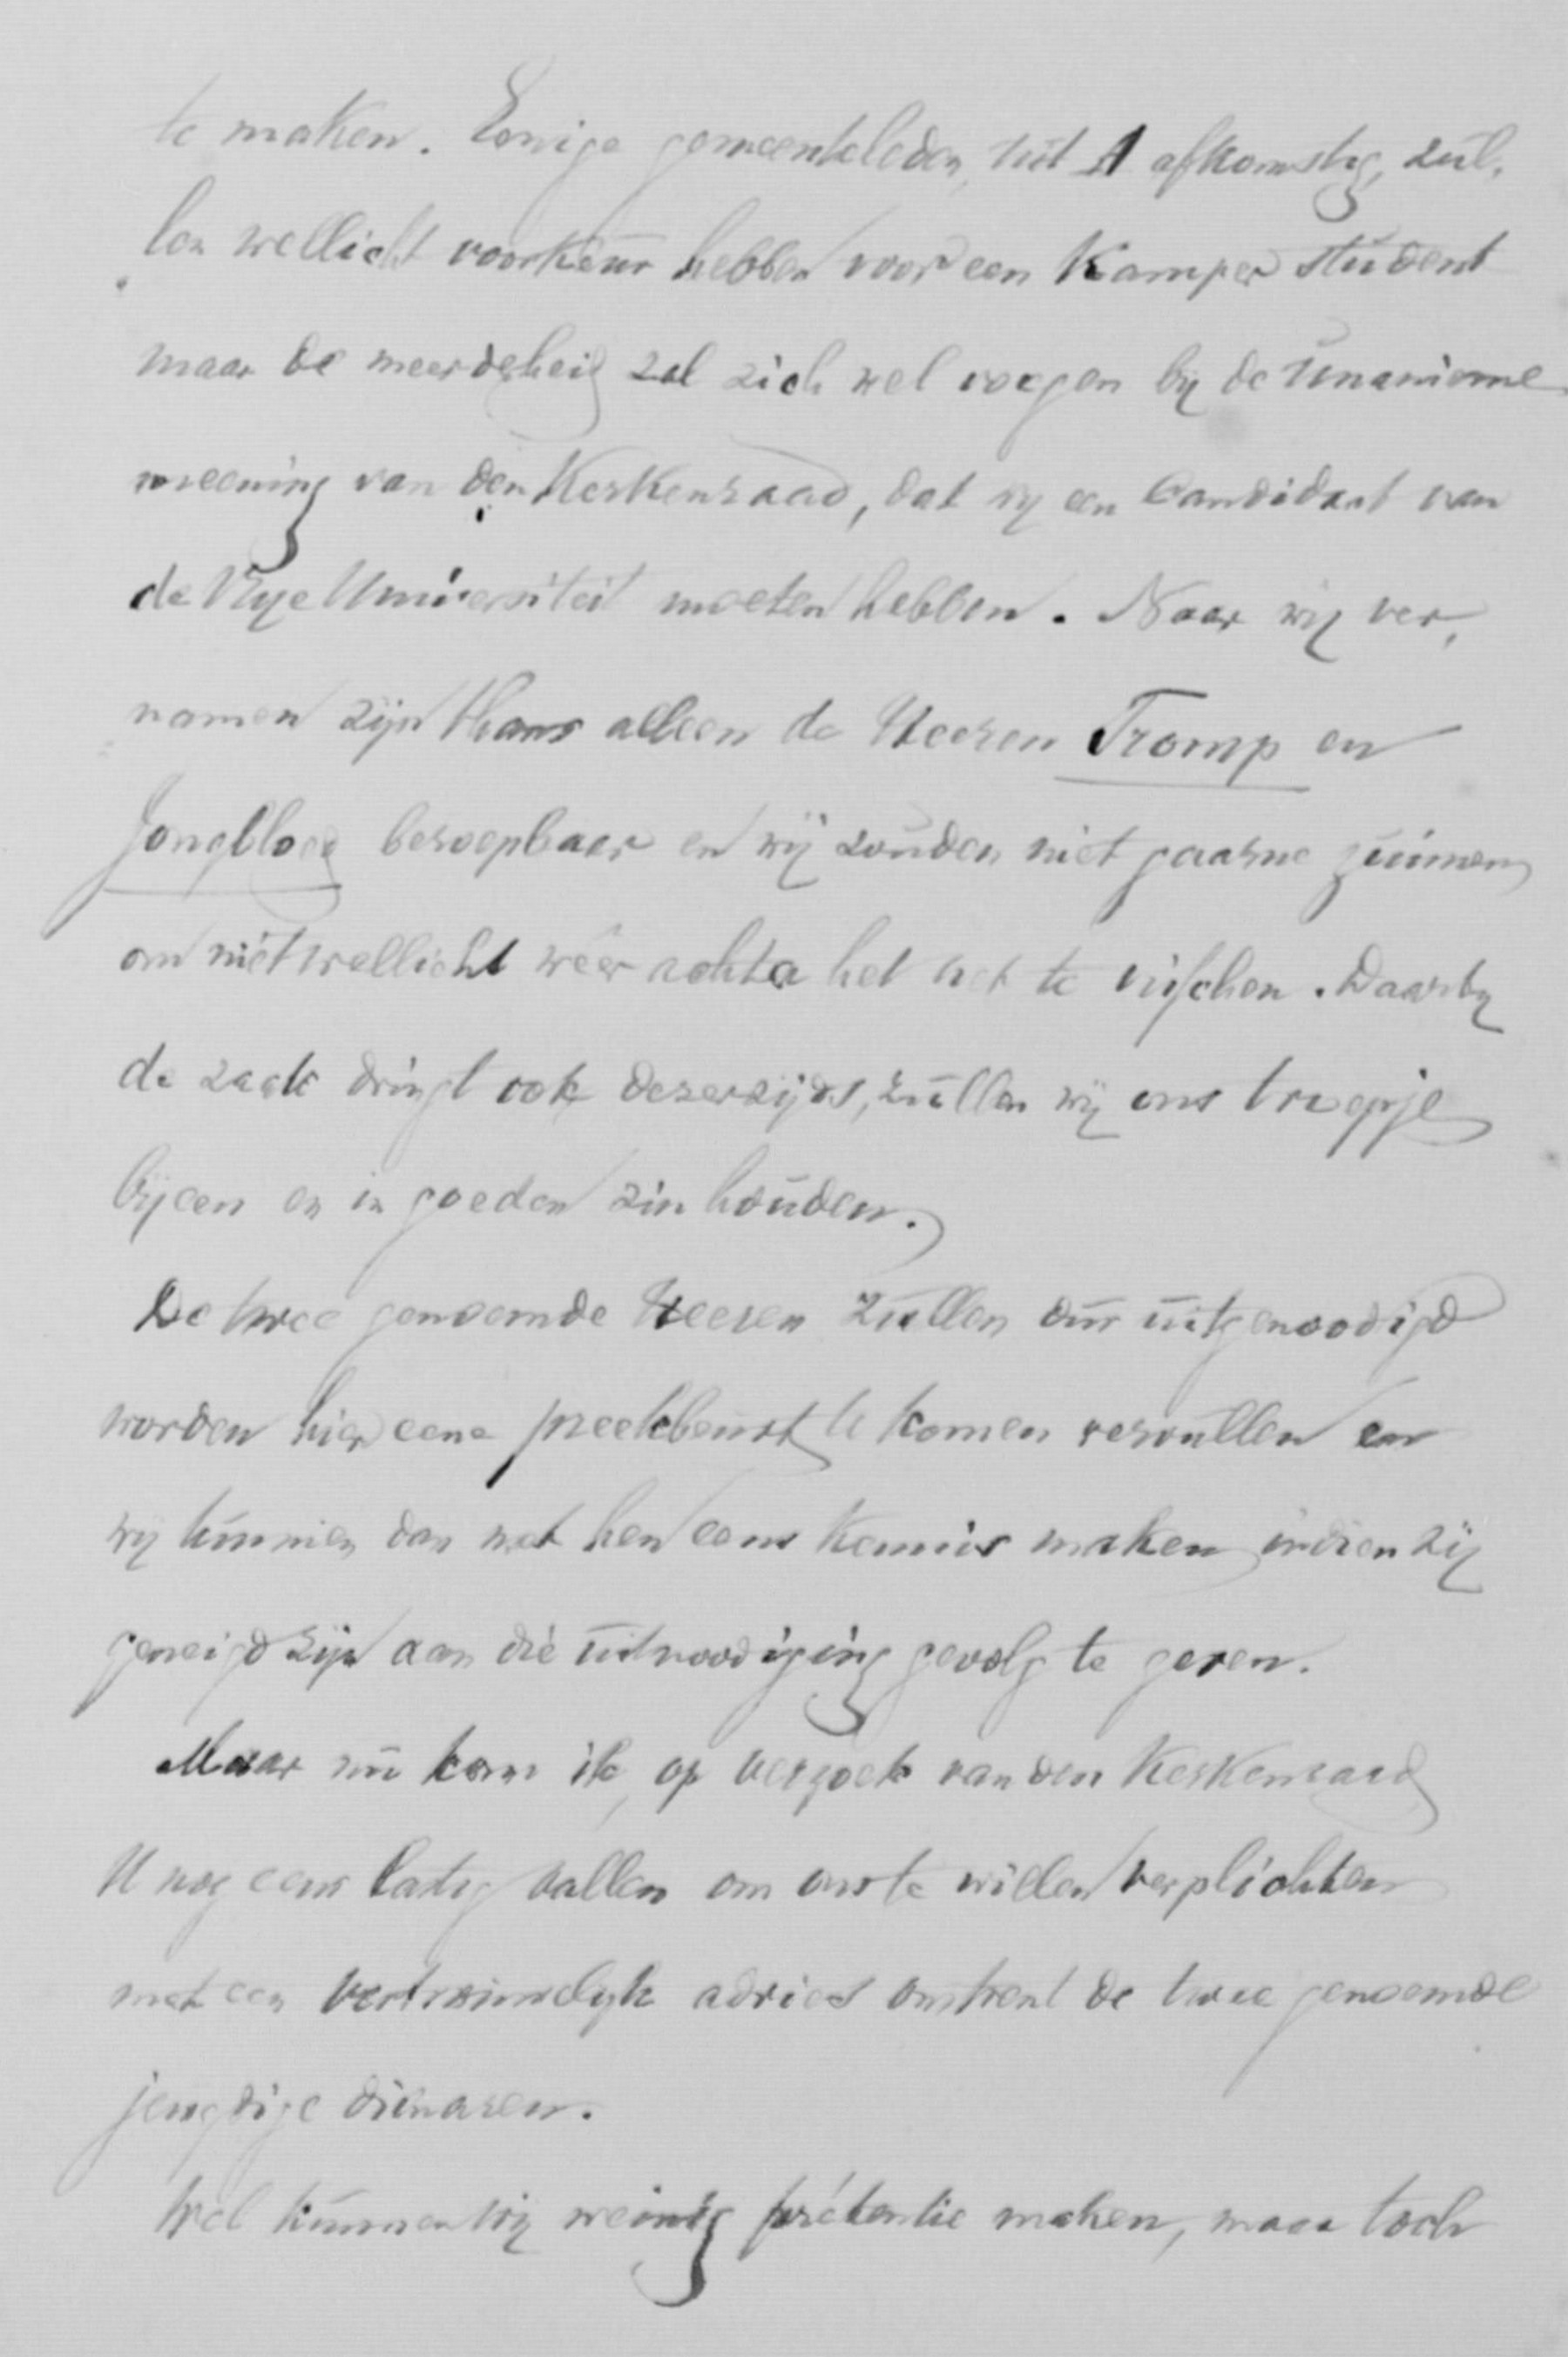 te maken. Eenige gemeenteleden, uit A afkomstig, zul-
len wellicht voorkeur hebben voor een Kamper student
maar de meerderheid zal zich wel voegen bij de unanieme
meening van den Kerkenraad, dat wij een Candidaat van
de Vrije Universiteit moeten hebben. Naar wij ver-
namen zijn thans alleen de Heeren Tromp en
Jongbloed beroepbaar en wij zouden niet gaarne
om niet wellicht wéér achter het net te visschen. Daarbij
de zaak dringt ook dezerzijds, zullen wij ons troepje
bijeen en in goeden zin houden.
De twee genoemde Heeren zullen dus uitgenoodigd
worden hier eene preekbeurt te komen vervullen en
wij kunnen dan met hen eens kennis maken indien zij
geneigd zijn aan die uitnoodiging gevolg te geven.
Maar nu kom ik, op verzoek van den Kerkenraad
U nog eens lastig vallen om ons te willen verplichten
met een vertrouwelijk advies omtrent de twee genoemde
jeugdige dienaren.
Wel kunnen wij weinig prétentie maken, maar toch